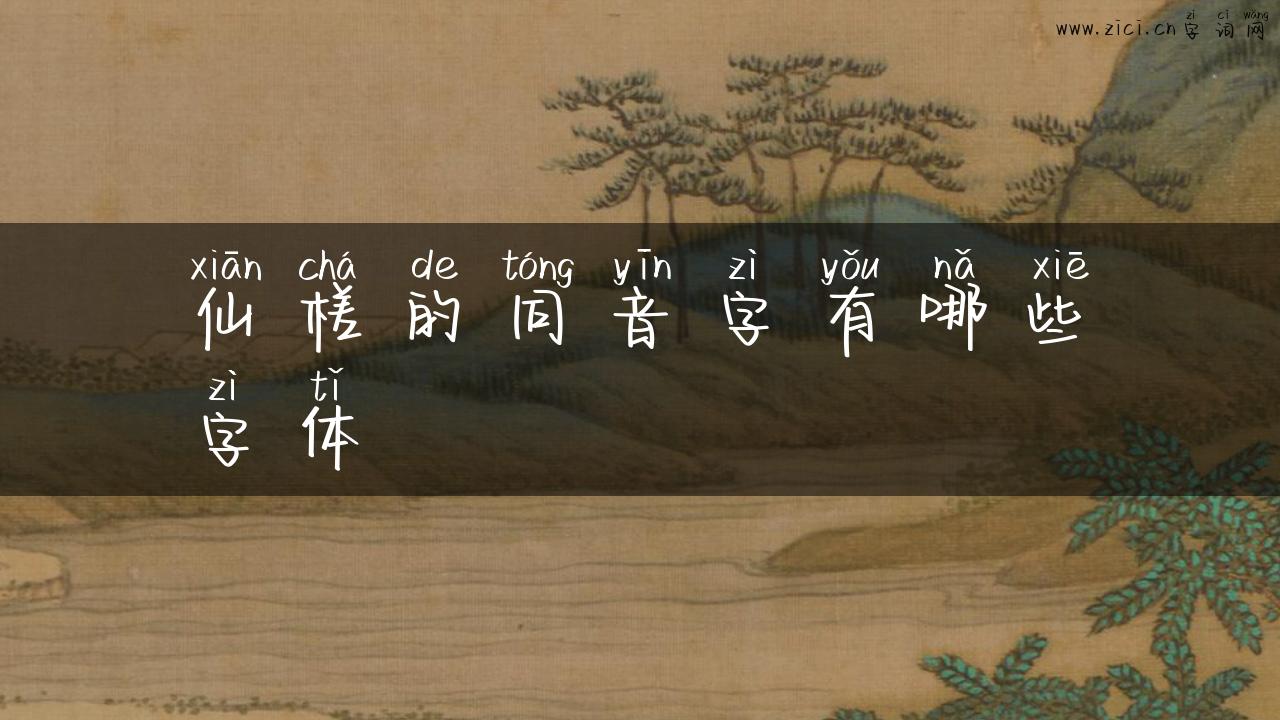 zì cí wǎng
www.zici.cn 字词网
xiān chá de tóng yīn zì yǒu nǎ xiē
仙槎的同音字有哪些
zì tǐ
字体